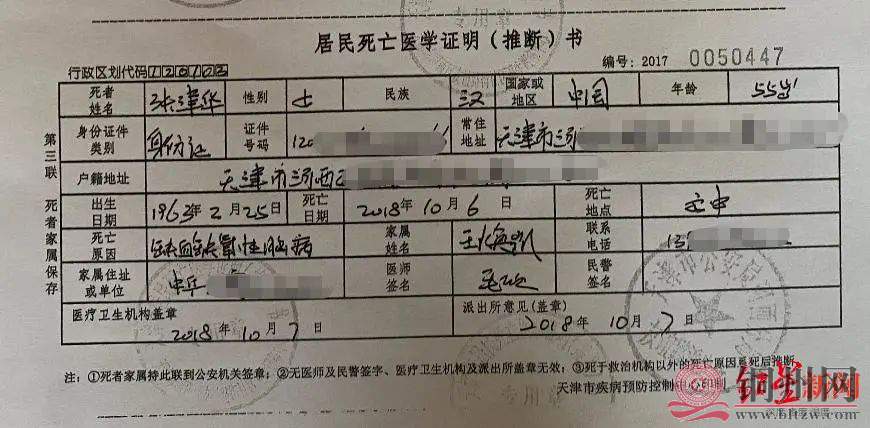 专用章
居民死亡医学证明（推断）书
编号：2017 0050447
行政区划代码 120103
死者姓名 张津华 性别 女 民族 汉 国家或地区 中国 年龄 55岁
身份证件类别 身份证 证件号码 120 常住地址 天津市河
户籍地址 天津市河西
出生日期 1963年2月25日 死亡日期 2018年10月6日 死亡地点 家中
死亡原因 缺血缺氧性脑病 家属姓名 联系电话
家属住址或单位 医师签名 民警签名
医疗卫生机构盖章 派出所意见（盖章）
2018年10月7日 2018年10月7日
第三联 死者家属保存
注：①死者家属持此联到公安机关签章；②无医师及民警签字、医疗卫生机构及派出所盖章无效；③死于救治机构以外的死亡原因系死后推断
天津市疾病预防控制中心印制
天津市公安局
红星新闻
www.bltzw.com